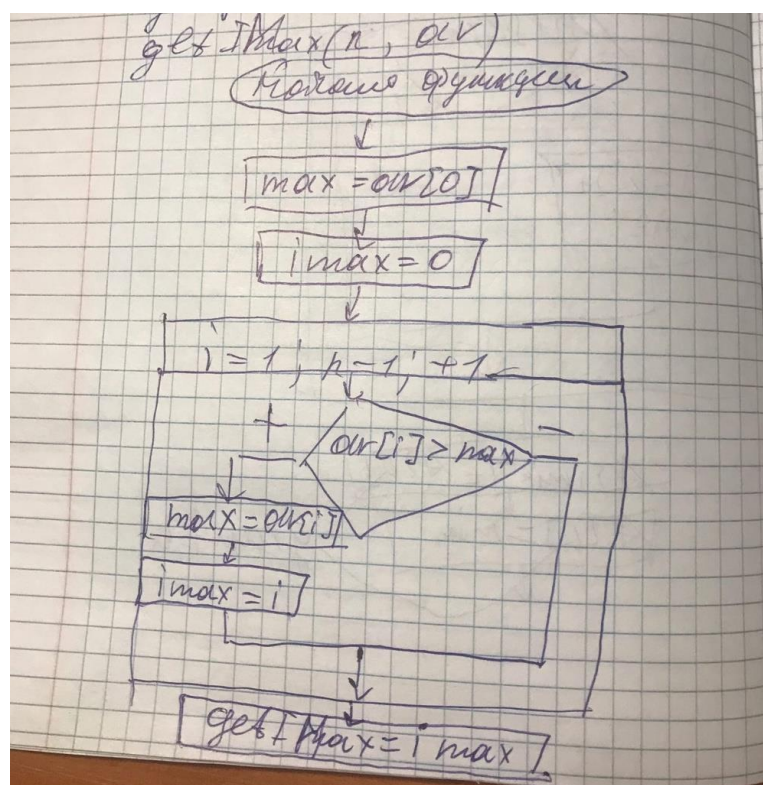 getIMax(n, ar)
Начало функции
max = ar[0]
imax = 0
i = 1; n-1; +1
+
-
ar[i] > max
max = ar[i]
imax = i
getIMax = imax